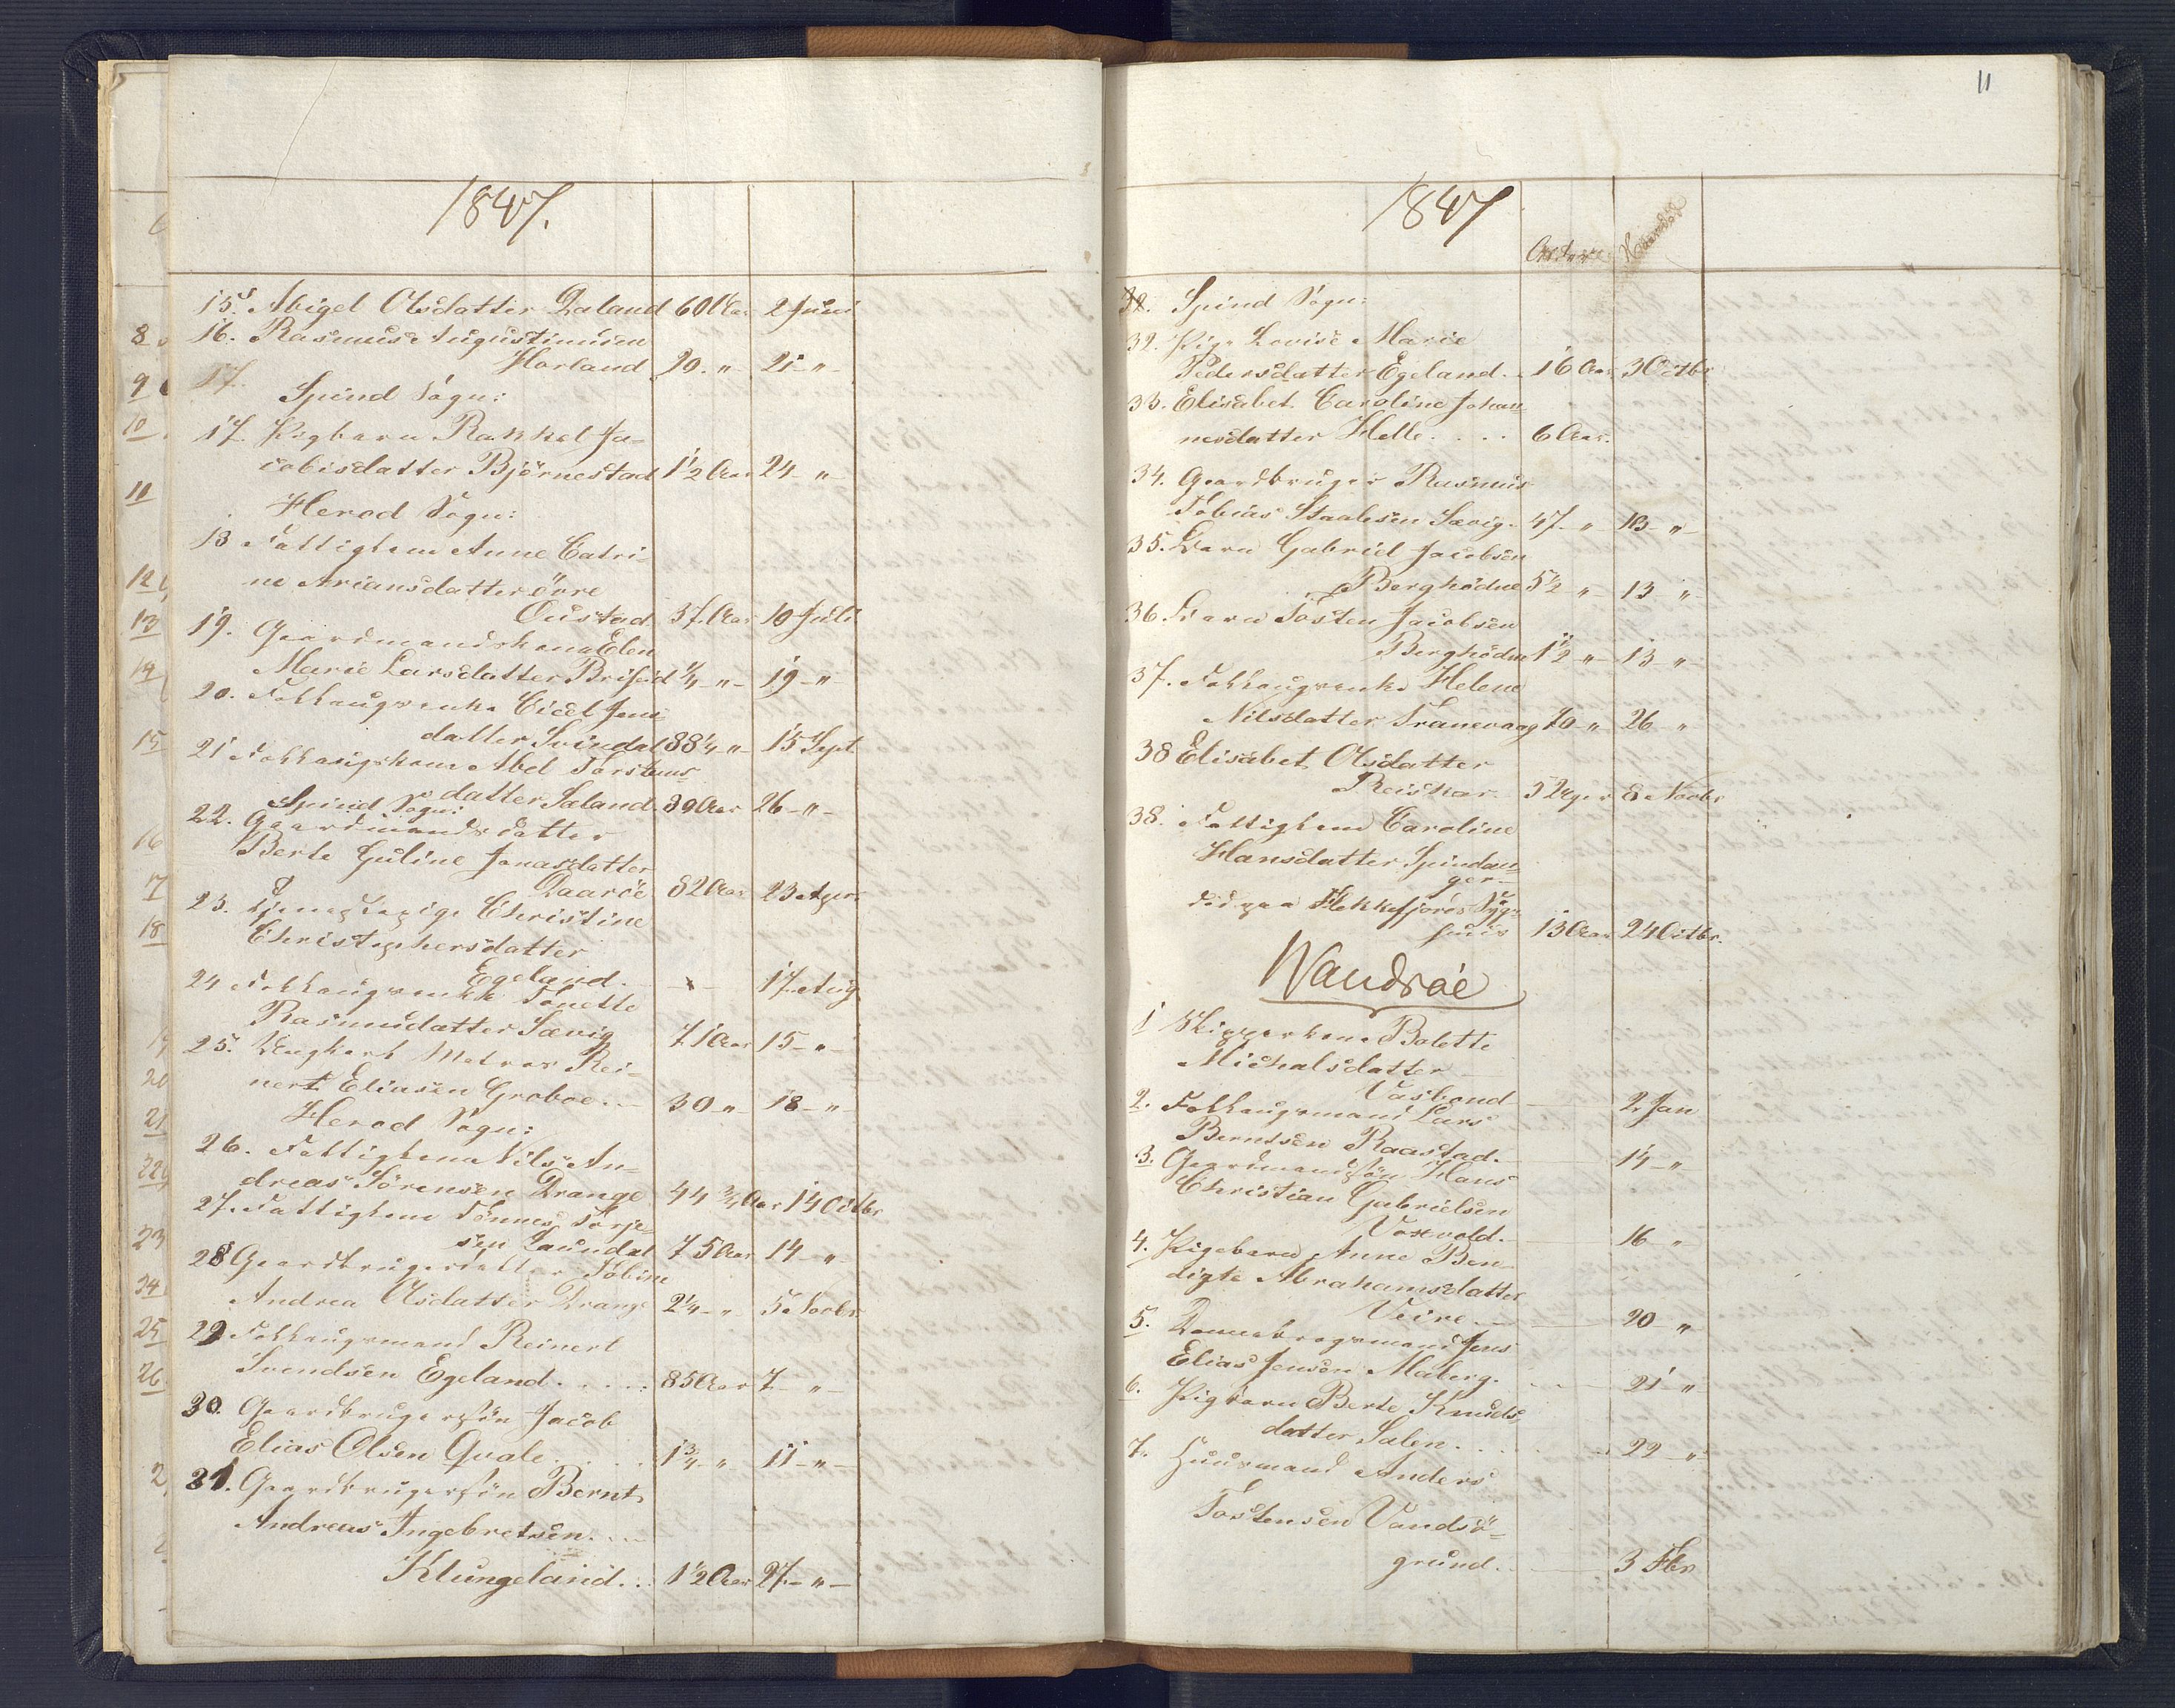 1847.
15. Abigel Olsdatter Daland 60 Aar 2 Juni
16. Rasmus Augustinusen
Horland 20 " 21 "
17.
Spind Sogn:
17. Pigbarn Rakkel Ja-
cobisdatter Björnestad 1½ Aar 24 "
Herod Sogn:
18 Fattiglem Anne Catri-
ne Ariansdatter övre
Oustad 37 Aar 10 Juli
19. Gaardmandskone Elen
Marie Larsdatter Briseid 19 "
20. Folkaugsenke Cicel Jens
datter Svindal 88¼ " 15 Sept
21 Folkaugskone Abel Torstens
datter Sæland 39 Aar 26 "
Spind Sogn:
22. Gaardmandsdatter
Berte Guline Jonasdatter
Daaröe 82 Aar 23
23. Tjenestepige Christine
Christophersdatter
Egeland. 17 Aug
24 Folkaugsenke Tonette
Rasmusdatter Sævig 71 Aar 15 "
25. Ungkarl Matros Rei-
nert Eliasen Groboe. 30 " 18 "
Herod Sogn:
26. Fattiglem Nils An-
dreas Sörensen Drange 44 ¾ Aar 14 Octbr
27. Fattiglem Tönnes Torje-
sen Laundal 75 Aar 14 "
28 Gaardbrugerdatter Tobine
Andrea Olsdatter Drange 2¼ " 5 Novbr
29 Folkaugsmand Reinert
Svendsen Egeland 85 Aar 7 "
30. Gaardbrugersön Jacob
Elias Olsen Qvale 1¾ " 11 "
31. Gaardbrugersön Bernt
Andreas Ingebretsen
Klungeland 1½ Aar 27 "
11
1847
32. Spind Sogn:
32. Pige Lovise Marie
Pedersdatter Egeland 16 Aar 3 Octbr
33. Elisabet Caroline Johan-
nesdatter Helle 6 Aar.
34. Gaardbruger Rasmus
Tobias Staalesen Sævig 47 " 13 "
35. Barn Gabriel Jacobsen
Berghödne 5½ " 13 "
36. Barn Tosten Jacobsen
Berghödne 1½ " 13 "
37. Folkaugsenke Helene
Nilsdatter Tranevaag 70 " 26 "
38 Elisabet Olsdatter
Reiskar 3 Uger 8 Novbr
38. Fattiglem Caroline
Hansdatter Spindan-
ger
död paa Flekkefjords Syg-
huus 13 Aar 24 Octbr.
Wandsöe
1 Skipperkone Bolette
Michalsdatter
Vasbond 2. Jan
2. Folkaugsmand Lars
Berntsen Raastad. 14 "
3. Gaardmandssön Hans
Christian Gabrielsen
16 "
4. Pigebarn Anne Ben-
digte Abrahamsdatter
Veire 20 "
5. Dannebrogsmand Jens
Elias Jensen Maberg. 21 "
6. Pigbarn Berte Knuds-
datter Salen 22 "
7. Huusmand Anders
Tostensen Vandsö-
grund. 3 Fbr